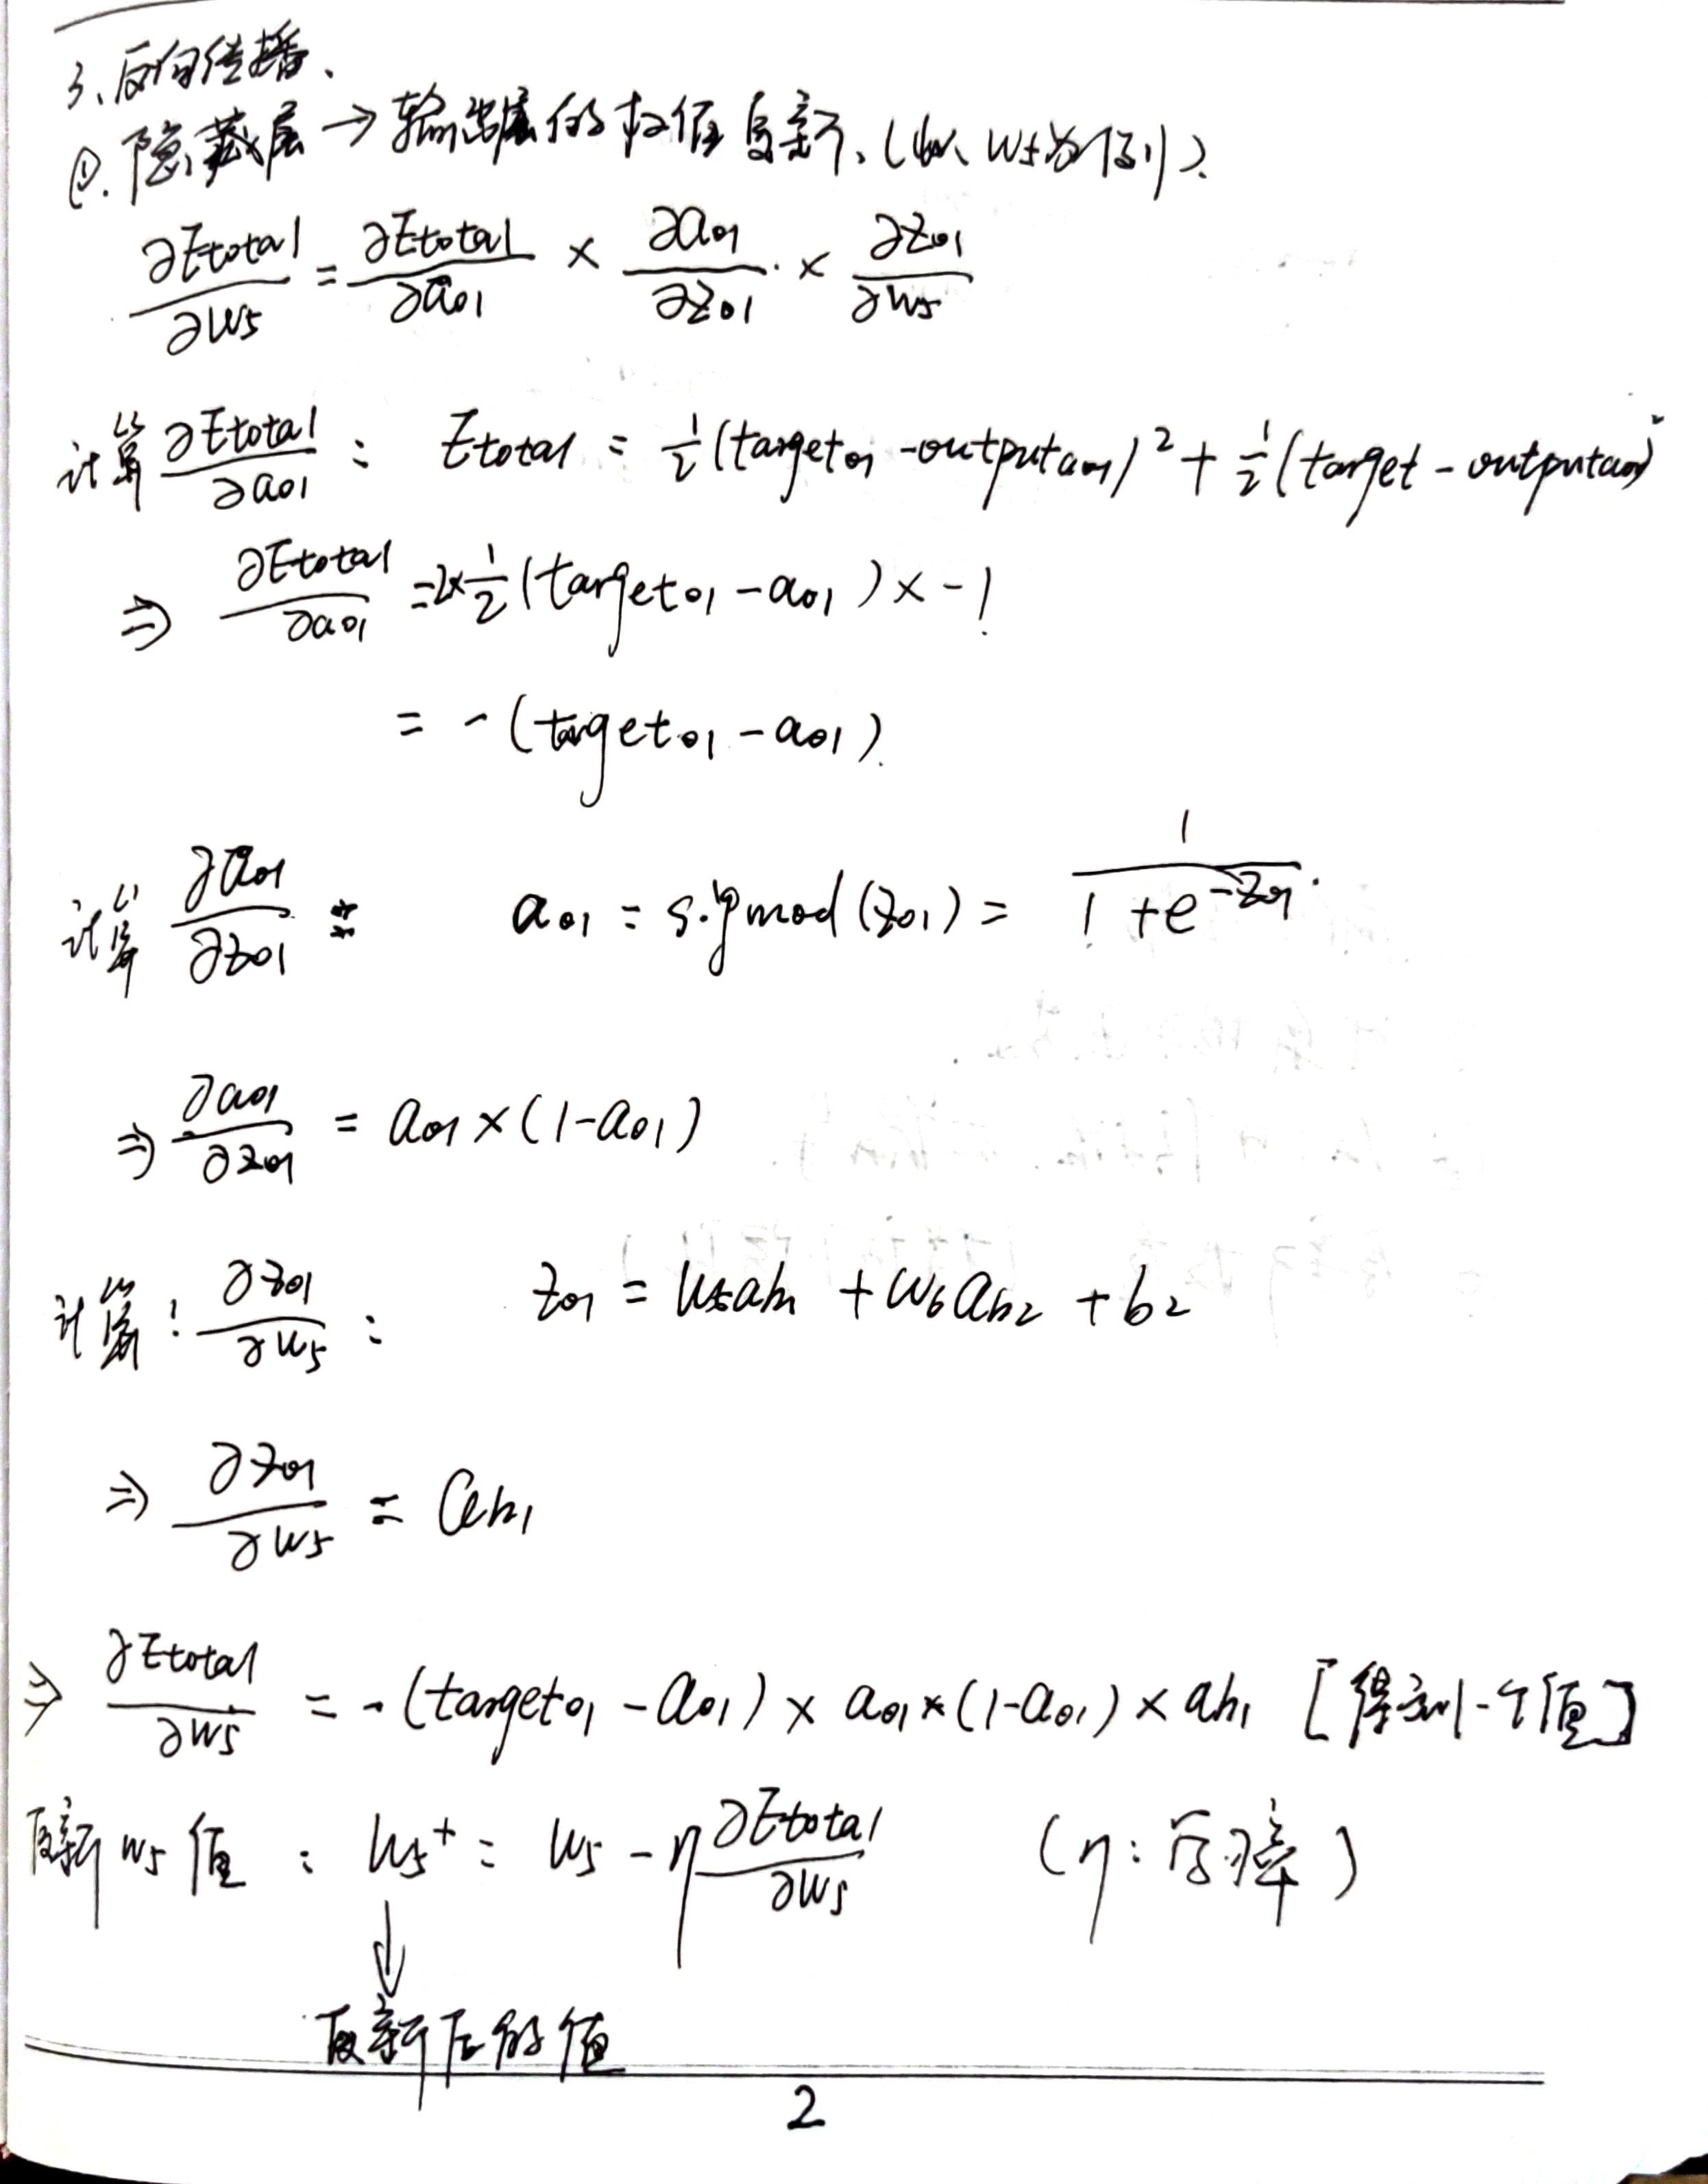 3、反向传播、
①. 隐藏层 → 输出层的权值更新、(以 w5为例)、
∂Etotal/∂w5 = ∂Etotal/∂ao1 × ∂ao1/∂zo1 × ∂zo1/∂w5
计算 ∂Etotal/∂ao1 : Etotal = 1/2(targeto1 - outputao1)² + 1/2(target - outputao2)²
⇒ ∂Etotal/∂ao1 = 2×1/2(targeto1 - ao1) × -1
= -(targeto1 - ao1).
计算 ∂ao1/∂zo1 : ao1 = sigmod(zo1) = 1/(1+e^-zo1)
⇒ ∂ao1/∂zo1 = ao1 × (1-ao1)
计算: ∂zo1/∂w5 : zo1 = w5ah1 + w6ah2 + b2
⇒ ∂zo1/∂w5 = ah1
⇒ ∂Etotal/∂w5 = -(targeto1 - ao1) × ao1 × (1-ao1) × ah1 [得到一个值]
更新 w5 值 : w5+ = w5 - η ∂Etotal/∂w5 (η: 学习率)
↓
更新后的值
2